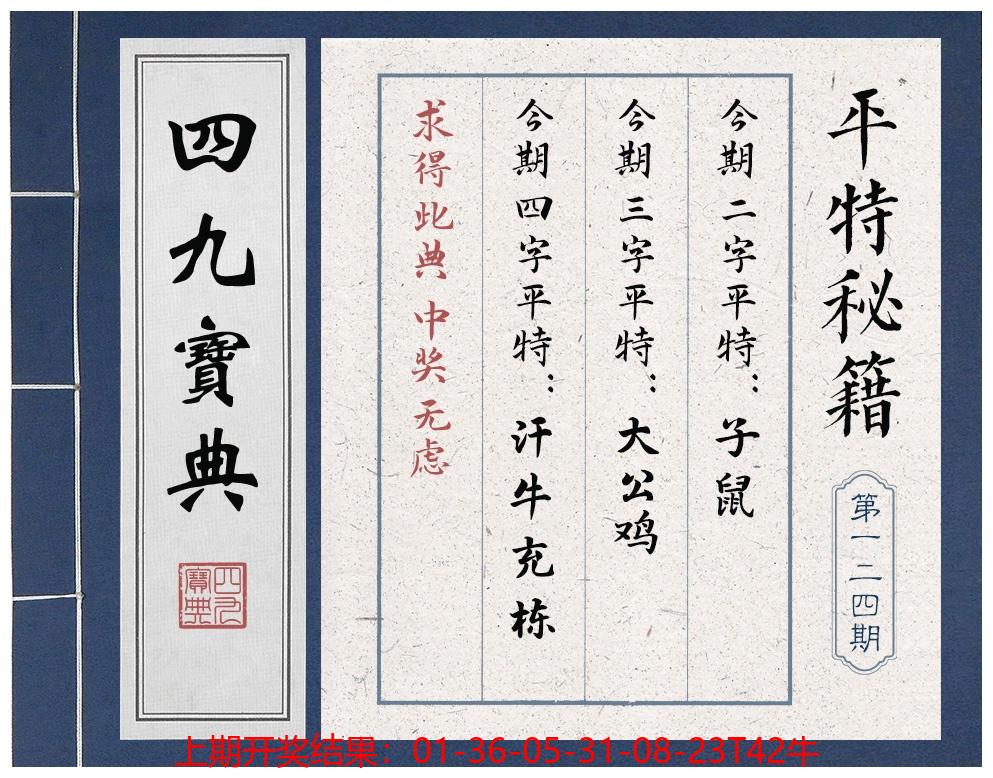 平特秘籍
第一二四期
今期二字平特：子鼠
今期三字平特：大公鸡
今期四字平特：汗牛充栋
求得此典 中奖无虑
四九寶典
四九
寶典
上期开奖结果：01-36-05-31-08-23T42牛